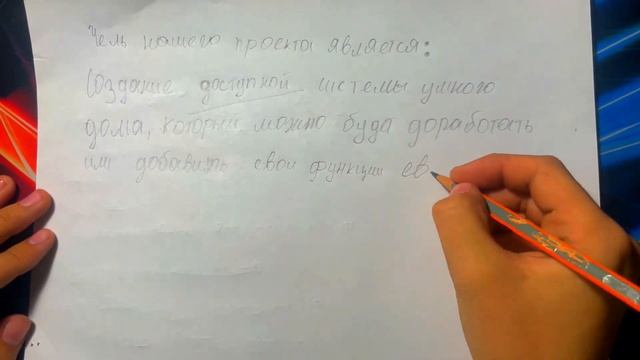 Цель нашего проекта является:
Создание доступной системы умного
дома, который можно буда доработать
им добавить свои функции ев